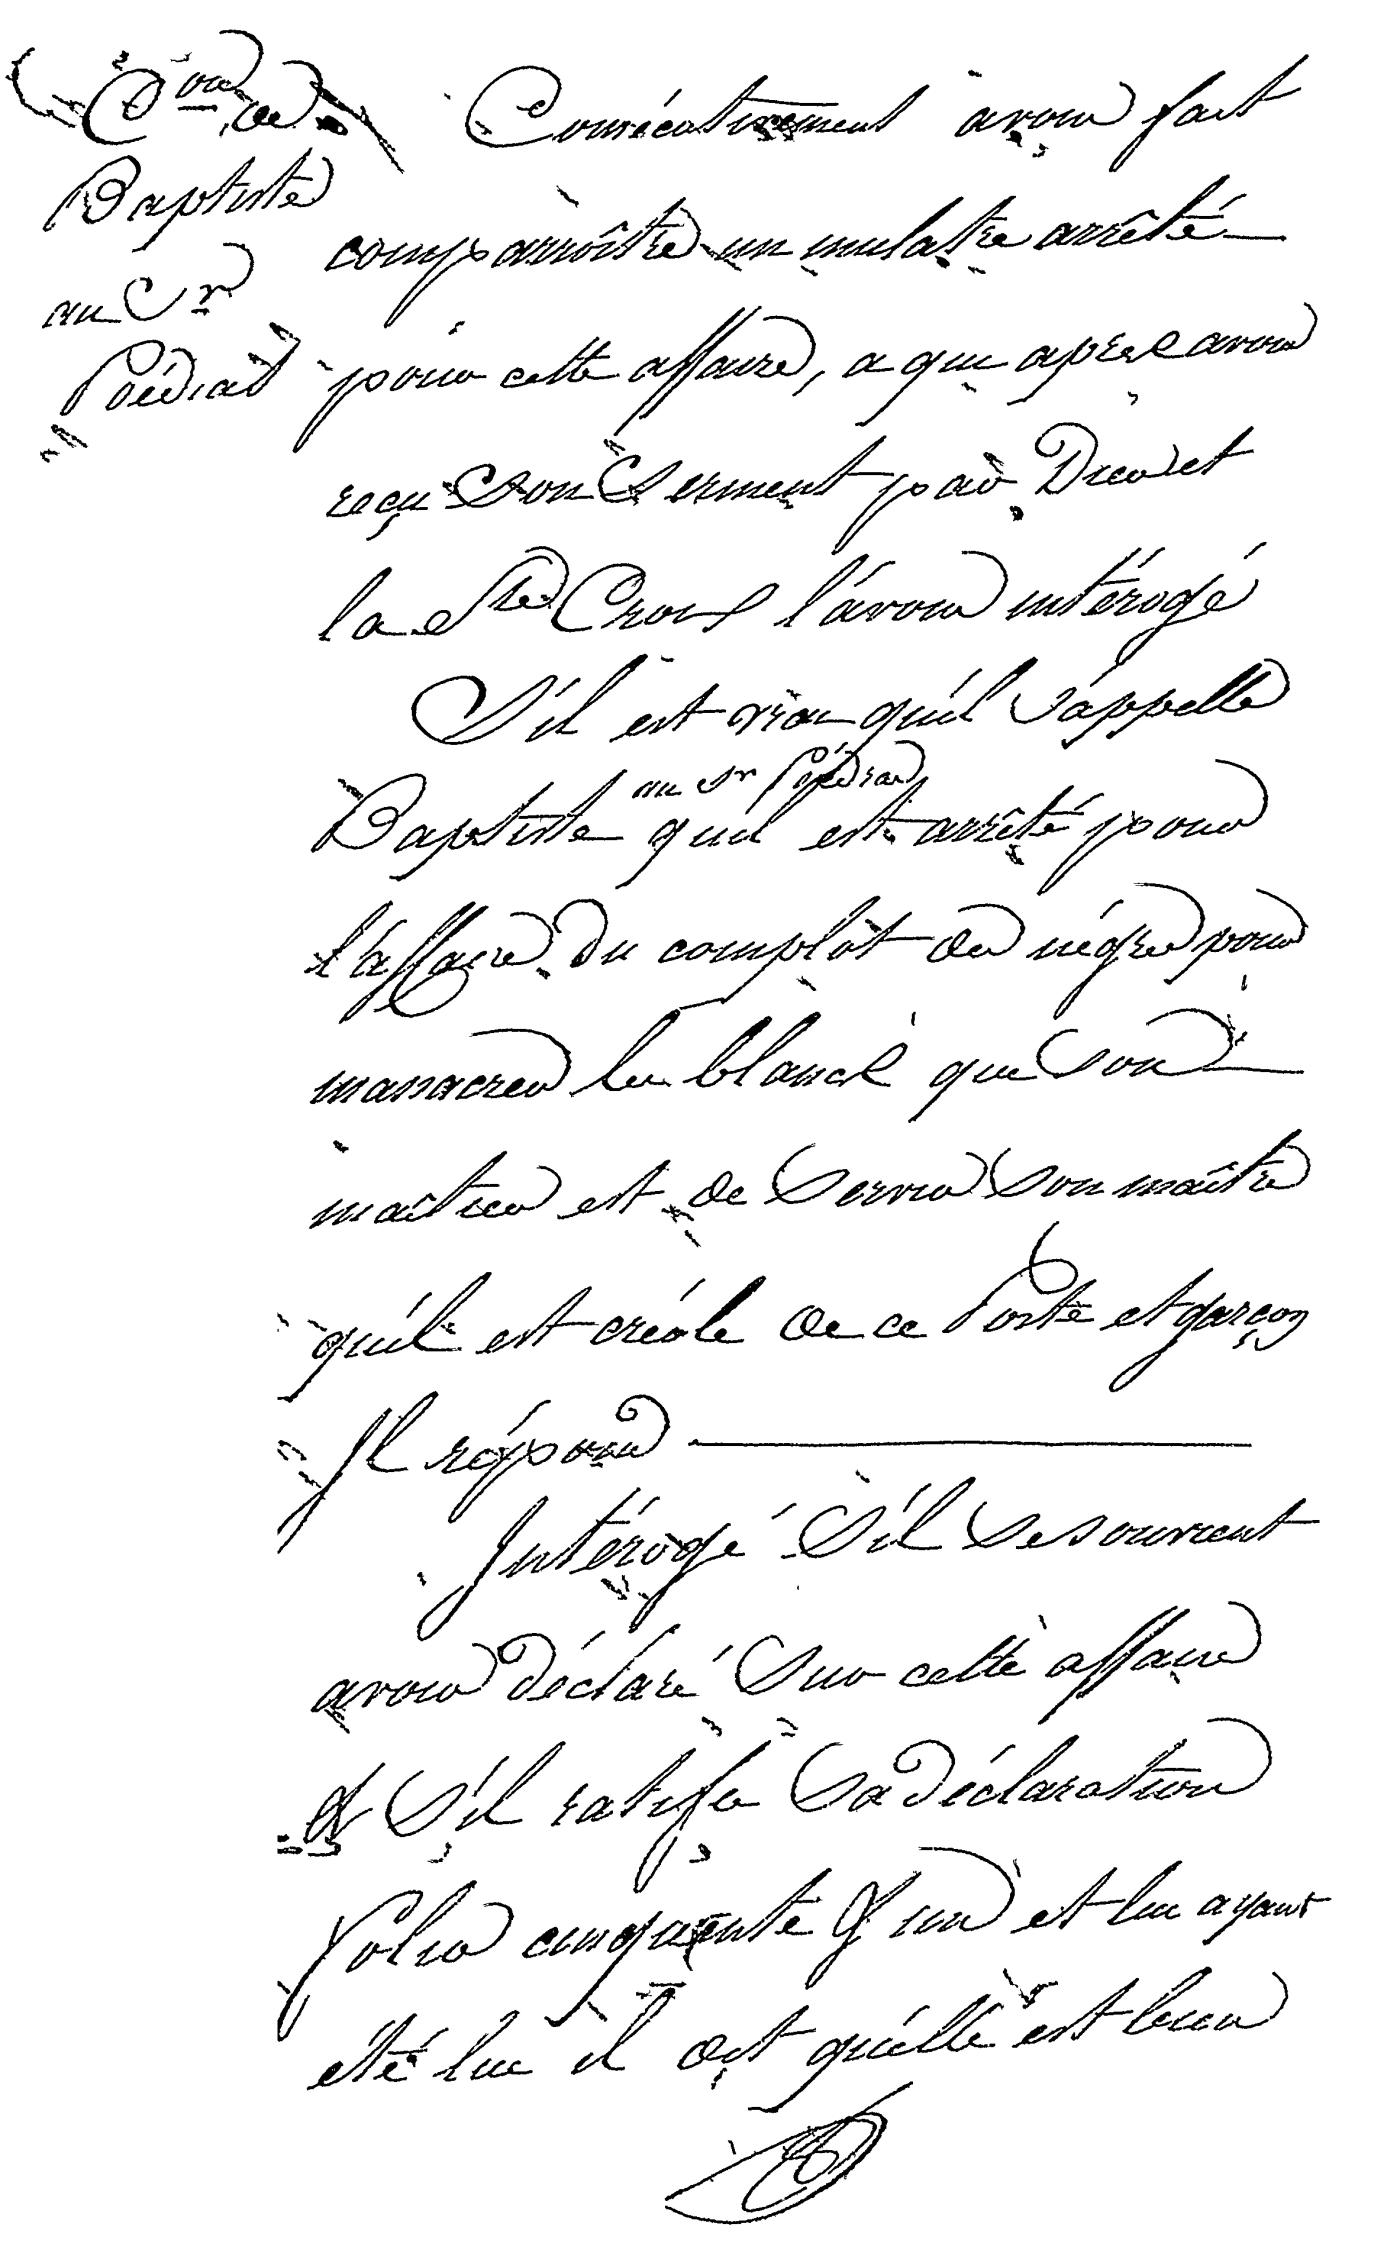 C.on de
Baptiste
au Sr
Poédras
Consécutivement avons fait
comparroître un mulatre arrêté
pour cette affaire, a qui après avoir
reçu Son Serment par Dieu et
la Ste Croix l'ávons intérogé
S'il est vrai qu'il S'appelle
au Sr Poédras
Baptiste qu'il est arrêté pour
l'affaire du complôt des négres pour
massacrer les blancs que Son
maîtier est de Servir Son maître
qu'il est créole de ce Poste et garçon
Il répond
Intérogé S'il Se souvient
avoir déclaré Sur cette affaire
& S'il ratifie Sa déclaration
Folio cinquante & un et lui ayant
été lue il dit qu'elle est bien